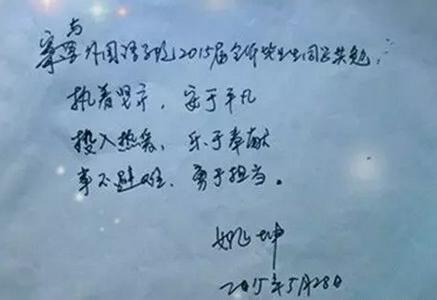 与
外国语学院2015届全体毕业生同学共勉：
执着坚守，安于平凡
投入热爱，乐于奉献
事不避难，勇于担当。
姚坤
2015年5月28日